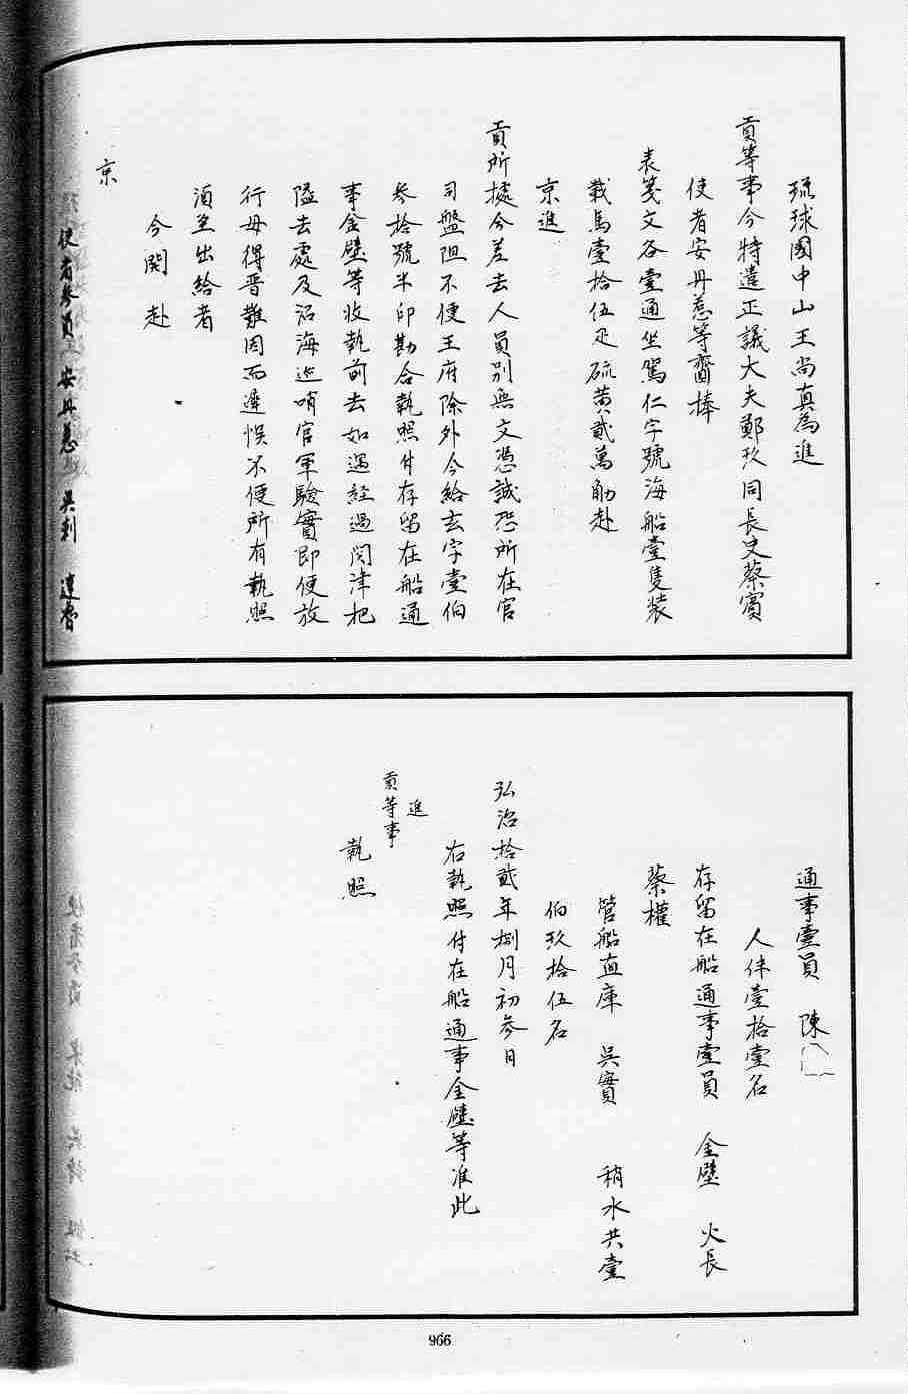 琉球國中山王尚真為進
貢等事今特遣正議大夫鄭玖同長史蔡賓
使者安丹惹等齎捧
表箋文各壹通坐駕仁字號海船壹隻裝
載馬壹拾伍疋硫黄貳萬觔赴
京進
貢所據今差去人員別無文憑誠恐所在官
司盤阻不便王府除外今給玄字壹伯
叁拾號半印勘合執照付存留在船通
事金璧等收執前去如遇經過関津把
隘去處及沿海巡哨官軍驗實即便放
行毋得晋難因而遲悞不便所有執照
須至出給者
今関赴
京
使者叁員 安丹惹 吳刺 達魯
通事壹員 陳
人伴壹拾壹名
存留在船通事壹員 金璧 火長
蔡權
管船直庫 吳實 稍水共壹
伯玖拾伍名
弘治拾貳年捌月初叁日
右執照付在船通事金璧等准此
進
貢等事
執照
966